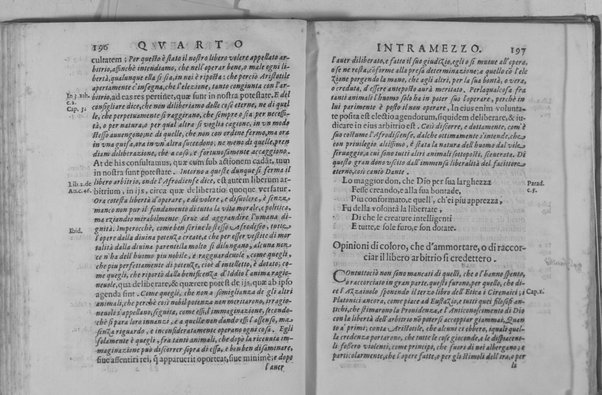 196 QVARTO
cultatem: Per questo è stato il nostro libero volere appellato ar-
bitrio, affinchè intendiamo, che nell'operar bene, o male ogni li-
bertà, qualunque ella si sia, in noi è riposta: che perciò Aristotile
apertamente c'insegna, che l'elezione, tanto congiunta con l'ar-
bitrio, ad ea res pertinet, quæ sunt in nostra potestate. E del
consigliare dice, che non deliberiamo delle cose eterne, ne di quel-
le, che perpetuamente si raggirano, che sempre o sia per necessi-
tà, o per natura, o per qual altra si voglia cagione, in vn modo
stesso auuengono; ne di quelle, che non con ordine fermo, ma ora
in vna guisa, ora in vn'altra succedono; ne meno di quelle, pren-
diam deliberazione, che a caso, e fortunosamente accaggiono,
At de his consultamus, quæ cum sub actionem cadāt, tum
in nostra sunt potestate. Intorno a queste dunque si ferma il
libero arbitrio, onde l'Afrodiseo disse, est autem liberum ar-
bitrium, in ijs, circa quæ de liberatio quoque versatur.
Ora cotesta libertà d'operare, di volere, e disuolere, è senza
manco non pur il fondamento di tutta la vita morale, e politica,
ma eziandio mirabilmente serue ad aggrandire l'umana di-
gnità. Imperochè, come ben scriue lo stesso Afrodiseo, tutte
l'opere della diuina potenza create, che per esser vestite di mor-
talità dalla diuina parentela molto si dilungano, alcuna non ce
n'ha dell'huomo più nobile, e ragguardeuole, come quegli,
che più perfettamente di potenza, cioè d'intelletto, è dotato; co-
me quegli, che riportò dalla beneficenza d'Iddio l'anima ragio-
neuole, qua deliberare, & quærere potest de ijs, quæ ab ipso
agenda sunt. Come quegli, che non a somiglianza de gli altri
animali, che perchè così nobil potenza non meritarono, irragio-
neuoli s'appellano, seguita, come essi l'immaginazione, secondo-
chè si para loro innanzi, e a quella non dandosi l'assenso, ma
senza riguardo, e inconsideratamente operano ogni cosa. Egli
solamente è quegli, fra tanti animali, che dopo la riceuuta im-
maginazione può discorrer sopra di essa, e ben ben disaminare,
siue assentiri rei, q̄ apparuerit oporteat, siue minimè; e dopo
l'auer
Cap. 3.
Ibid.
INTRAMEZZO. 197
l'auer deliberato, e fatto il suo giudizio, egli o si mette all'opera,
o se ne resta, cōforme alla presa determinazione; a quello cō l'ele-
zione porgendo la mano, che agli altri, per la sua bontà, o vera,
o creduta, d'essere anteposto aurà meritato. Perlaqualcosa fra
tanti animali l'huomo solo ha in poter suo l'operare, perchè in
lui parimente è posto il non operare, In eius enim volunta-
te posita est electio agendorum, siquidem deliberare, & iu-
dicare in eius arbitrio est. Così discorre, e dottamente, com'è
suo costume l'Afrodiseo. Laonde altissimamente s'intende, che
con priuilegio altissimo, è stata la natura dell'huomo dal vile
seruaggio, a cui son tutti altri animali sottoposti, scuerata. Di
questo gran dono vestito dall'immensa liberalità del facitore,
eterno, così canto Dante.
Lo maggior don, che Dio per sua larghezza
Fesse creando, e alla sua bontade,
Più conformato, e quell', ch'ei più apprezza,
Fu della volontà la libertate,
Di che le creature intelligenti
E tutte, e sole furo, e son dotate.
Parad.
c. 5.
Opinioni di coloro, che d'ammortare, o di raccor-
ciar il libero arbitrio si credettero.
COntuttociò non sono mancati di quelli, che o l'hanno spento,
o raccorciato in gran parte; questa fermo, per quello, che di-
ce l'Afranolo sponendo il terzo libro dell'Etica i Cirenaici; i
Platonici ancora, come piace ad Eustazio, e tutti quei filosofi an-
tichi, che stimarono la Prouidenza, e l'Anticonoscimento di Dio
con la libertà dell'arbitrio nō potersi accoppiar giammai. Quan-
to a' primi; conta Aristotile, che alcuni ci ebbero, iquali quel-
la credenza portarono, che tutte le cose giocende, e le dispiaceuo-
li fossero violenti, come principio, che fuori di noi albergano; e
particolarmente, che l'opere fatte, e per gli stimoli dell'ira, e per
li
Cap. 1.